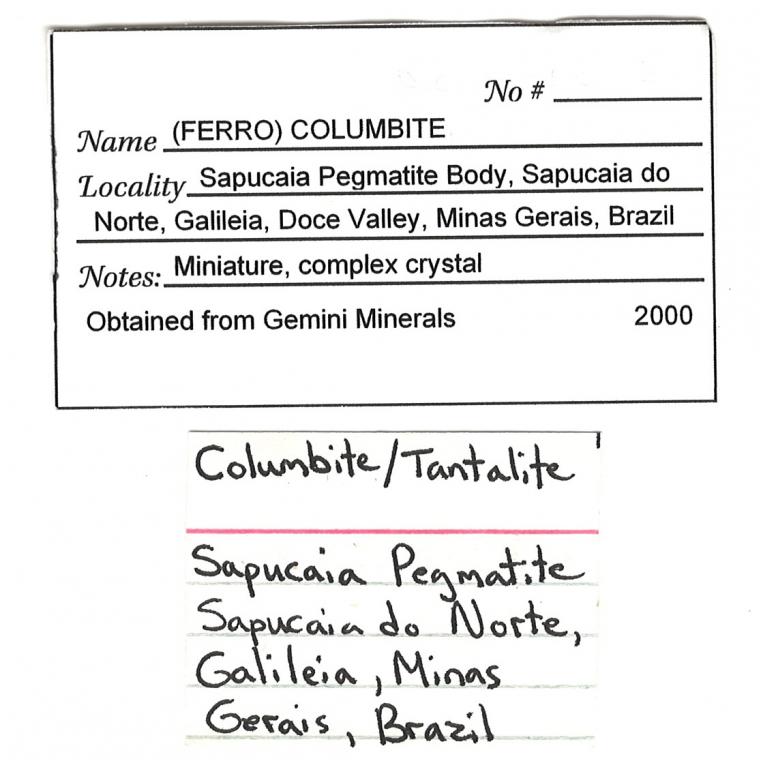 No #
Name (FERRO) COLUMBITE
Locality Sapucaia Pegmatite Body, Sapucaia do
Norte, Galileia, Doce Valley, Minas Gerais, Brazil
Notes: Miniature, complex crystal
Obtained from Gemini Minerals 2000
Columbite/Tantalite
Sapucaia Pegmatite
Sapucaia do Norte,
Galileia, Minas
Gerais, Brazil